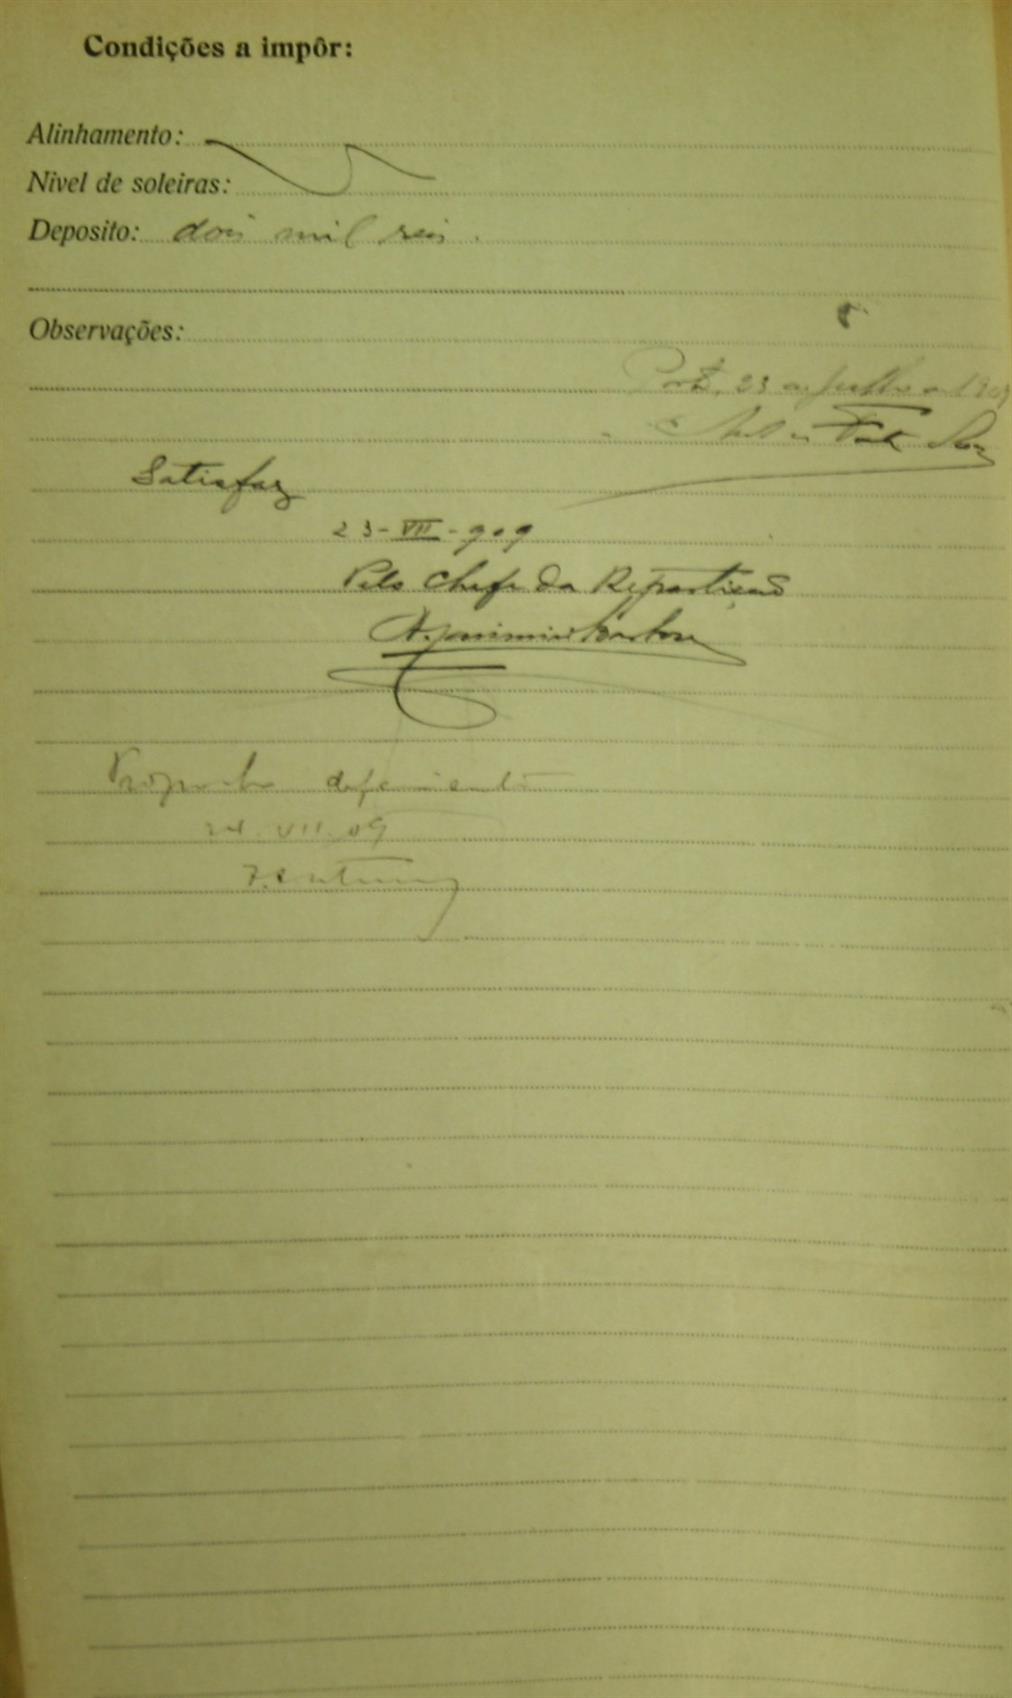 Condições a impôr:
Alinhamento:
Nivel de soleiras:
Deposito: dois mil reis.
Observações:
Porto, 23 de Julho de 1909
Satisfaz
23-VII-909
Pelo Chefe da Repartição
deferimento
24.VII.09